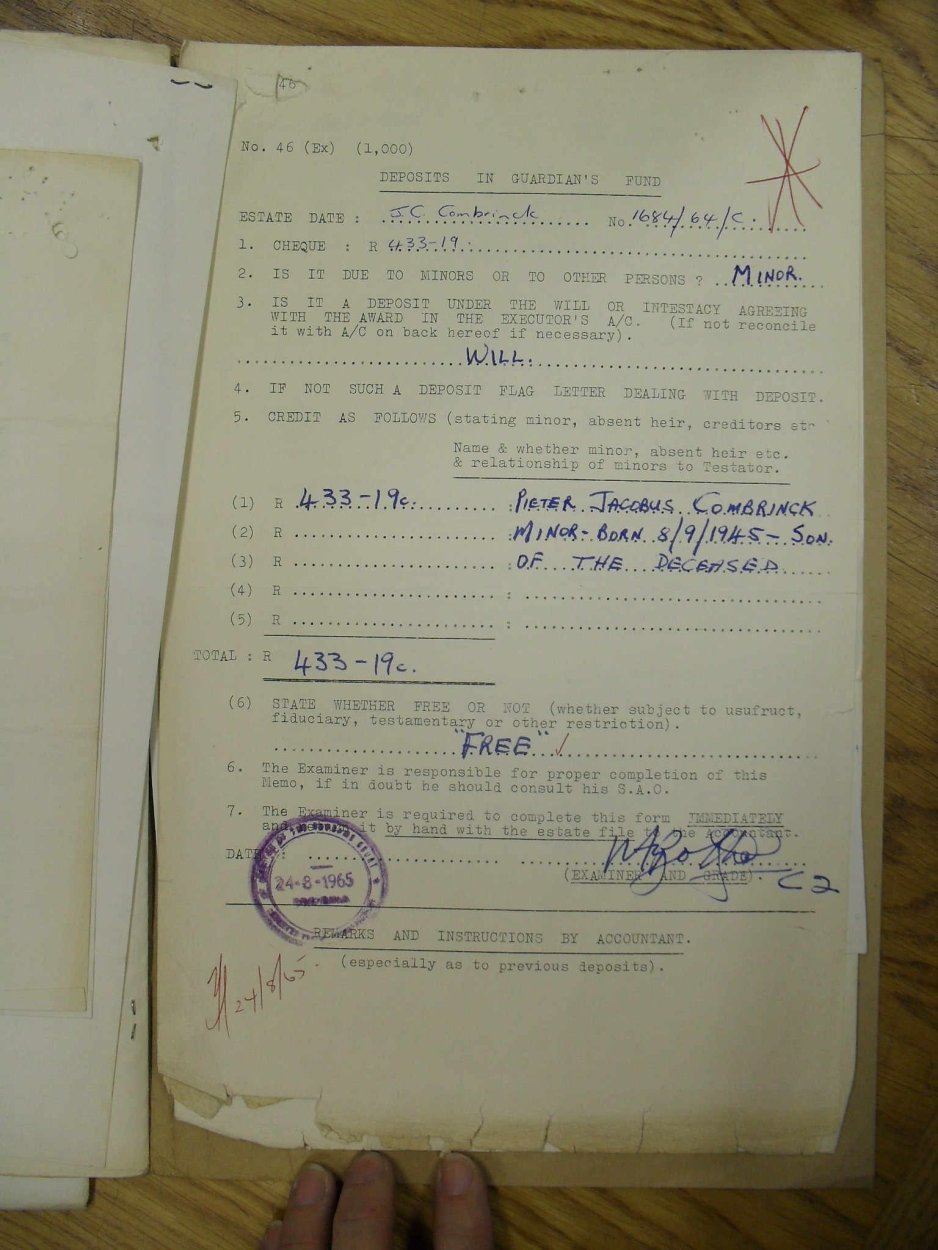 46
No. 46 (Ex) (1,000)
DEPOSITS IN GUARDIAN'S FUND
ESTATE DATE : J.C. Combrinck No. 1684/64/C.
1. CHEQUE : R 433-19.
2. IS IT DUE TO MINORS OR TO OTHER PERSONS ? MINOR.
3. IS IT A DEPOSIT UNDER THE WILL OR INTESTACY AGREEING
WITH THE AWARD IN THE EXECUTOR'S A/C. (If not reconcile
it with A/C on back hereof if necessary).
WILL.
4. IF NOT SUCH A DEPOSIT FLAG LETTER DEALING WITH DEPOSIT.
5. CREDIT AS FOLLOWS (stating minor, absent heir, creditors etc
Name & whether minor, absent heir etc.
& relationship of minors to Testator.
(1) R 433-19c. : PIETER JACOBUS COMBRINCK
(2) R : MINOR - BORN 8/9/1945 - SON.
(3) R : OF THE DECEASED
(4) R :
(5) R :
TOTAL : R 433-19c.
(6) STATE WHETHER FREE OR NOT (whether subject to usufruct,
fiduciary, testamentary or other restriction).
"FREE"
6. The Examiner is responsible for proper completion of this
Memo, if in doubt he should consult his S.A.O.
7. The Examiner is required to complete this form IMMEDIATELY
and it by hand with the estate file to the Accountant.
DATE :
24-8-1965
(EXAMINER AND GRADE). C2
REMARKS AND INSTRUCTIONS BY ACCOUNTANT.
(especially as to previous deposits).
24/8/65